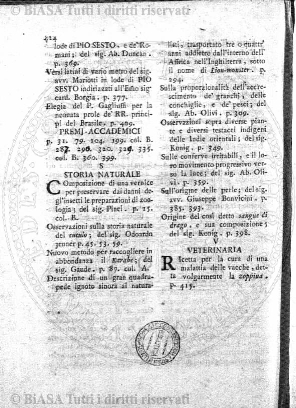 © BIASA Tutti i diritti riservati
424
lode di PIO SESTO. e de'Ro-
mani; del sig. Ab. Duncan.
p. 369.
Versi latini di vario metro del sig.
avv. Mariotti in lode di PIO
SESTO indirizzati all'Emo sig
card. Borgia. p. 377.
Elegia del P. Gagliuffi per la
neonata prole de' RR. princi-
pi del Brasile. p. 409.
PREMJ-ACCADEMICI
p. 31. 79. 104. 199. col. B.
287. 296. 320. 329. 335.
col. B. 360. 399.
S
STORIA NATURALE
Composizione di una vernice
per preservare dai danni de-
gl'insetti le preparazioni di zoo-
logia; del sig. Pinel. p. 15.
col. B.
Osservazioni sulla storia naturale
del cuculo; del sig. Odoardo
Jenner p. 45. 53. 59.
Nuovo metodo per raccogliere in
abbondanza il Kerabe; del
sig. Gaude. p. 87. col. A.
Descrizione di un gran quadru-
pede ignoto sinora ai natura-
listi, trasportato tre o quattr'
anni addietro dall'interno dell'
Affrica nell'Inghilterra, sotto
il nome di Lion-monster. p.
294.
Sulla proporzionalità dell'accre-
scimento de' granchi, delle
conchiglie, e de' pesci; del
sig. Ab. Olivi. p. 309.
Osservazioni sopra diverse pian-
te e diversi testacei indigeni
delle Indie orientali; del sig.
Konig. p. 349.
Sulle conferve irritabili, e il lo-
ro movimento progressivo ver-
so la luce; del sig. Ab. Oli-
vi. p. 359.
Sull'origine delle perle; del sig.
avv. Giuseppe Bonvicini. p.
385. 393.
Origine del così detto sangue di
drago, e sua composizione;
del sig. Konig. p. 398.
V
VETERINARIA
Ricetta per la cura di una
malattia delle vacche, det-
ta volgarmente la zoppina.
p. 415.
© BIASA Tutti i diritti riservati